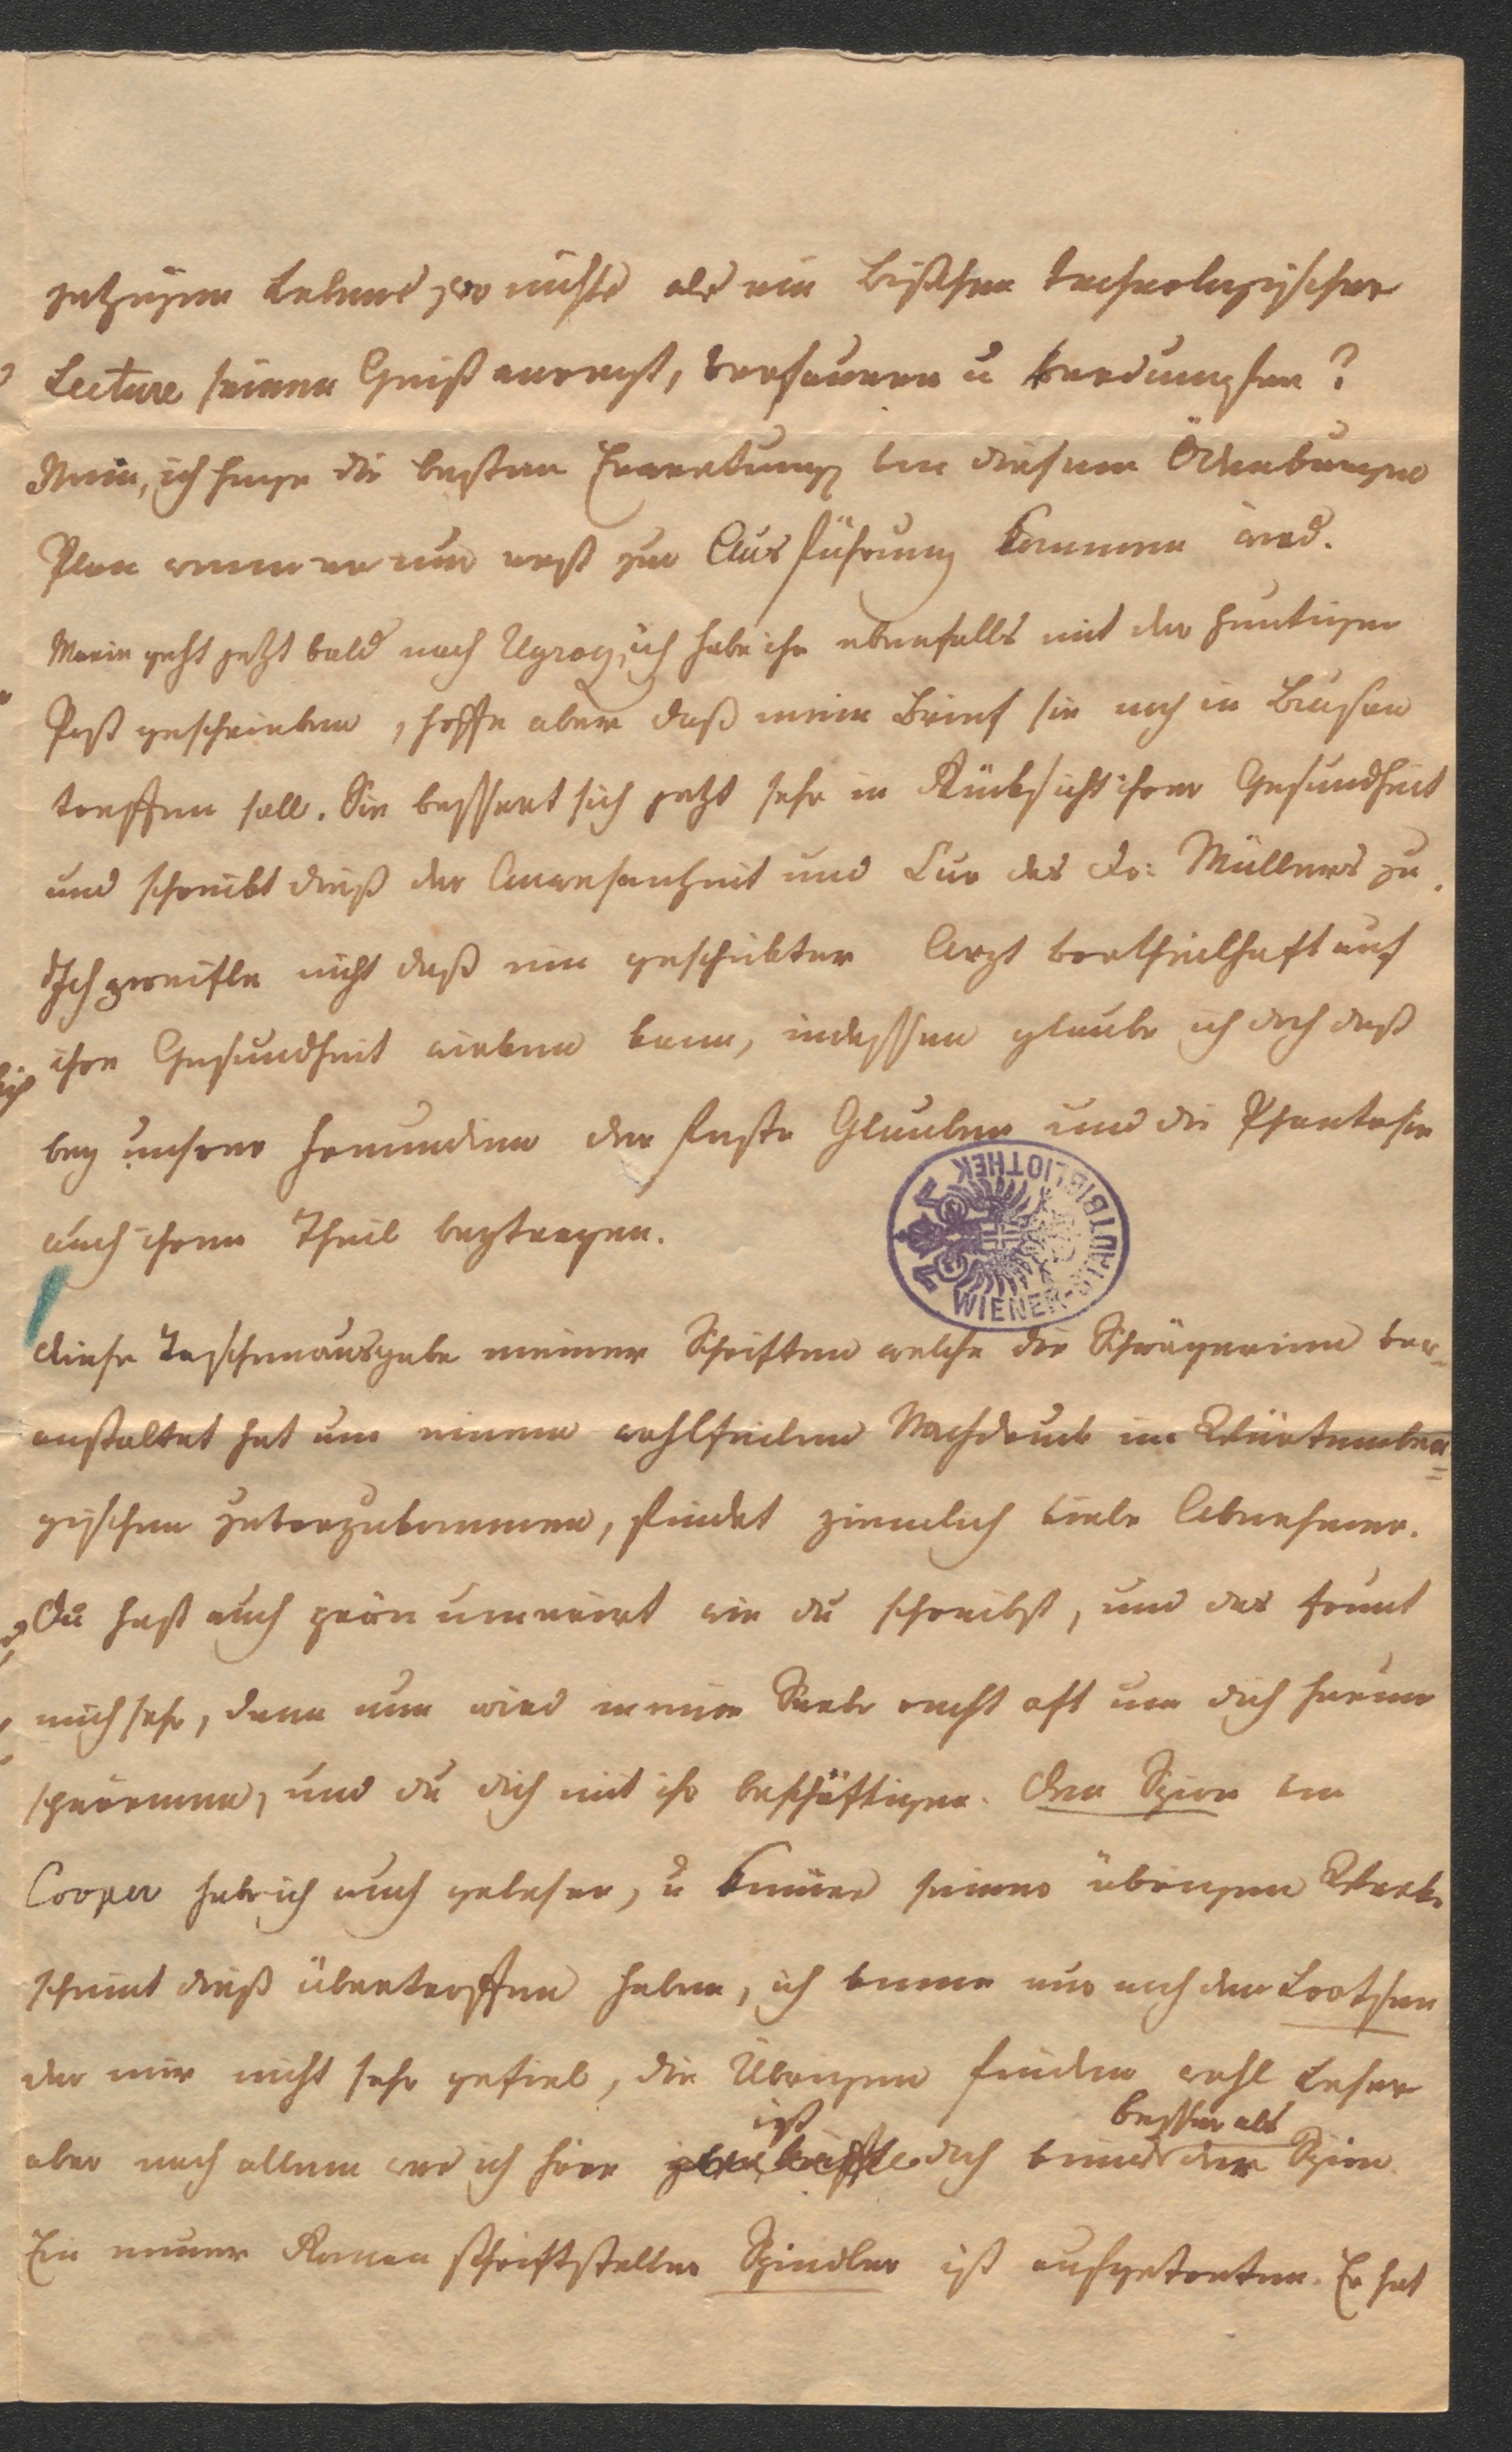 jetzigen Lebens, wo nichts als ein bißchen technologischer
Lecture seinen Geist anregt, versauern u verdumpfen?
Nein, ich hege die besten Erwartung von diesem Ödenburger
Plan wenn er nur erst zur Ausführung kommen wird.
Marie geht jetzt bald nach Ugrocz, ich habe ihr ebenfalls mit der heutigen
Post geschrieben, hoffe aber daß mein Brief sie noch in Bucsan
treffen soll. Sie bessert sich jetzt sehr in Rücksicht ihrer Gesundheit
und schreibt dieß der Anwesenheit und Cur des Dr: Müllers zu.
Ich zweifle nicht daß ein geschickter Arzt vortheilhaft auf
ihre Gesundheit wirken kann, indessen glaube ich doch daß
bey unsrer Freundinn der feste Glauben und die Phantasie
auch ihren Theil beytragen.
WIENER STADTBIBLIOTHEK
Diese Taschenausgabe meiner Schriften welche die Schwägerinn ver=
anstaltet hat um einem wohlfeilen Nachdruck im Würtember=
gischen zuvorzukommen, findet ziemlich viele Abnehmer.
Du hast auch pränumerirt wie du schreibst, und das freut
mich sehr, denn nun wird meine Seele recht oft um dich herum
schwärmen, und du dich mit ihr beschäftigen. Den Spion von
Cooper habe ich auch gelesen, u keines seiner übrigen Werke
scheint dieß übertroffen haben, ich kenne nur noch den Lootsen
der mir nicht sehr gefiel, die Übrigen finden wohl Leser
ist besser als
aber nach allem was ich höre doch keines der Spion.
Ein neuer Romanschriftsteller Spindler ist aufgetreten. Er hat